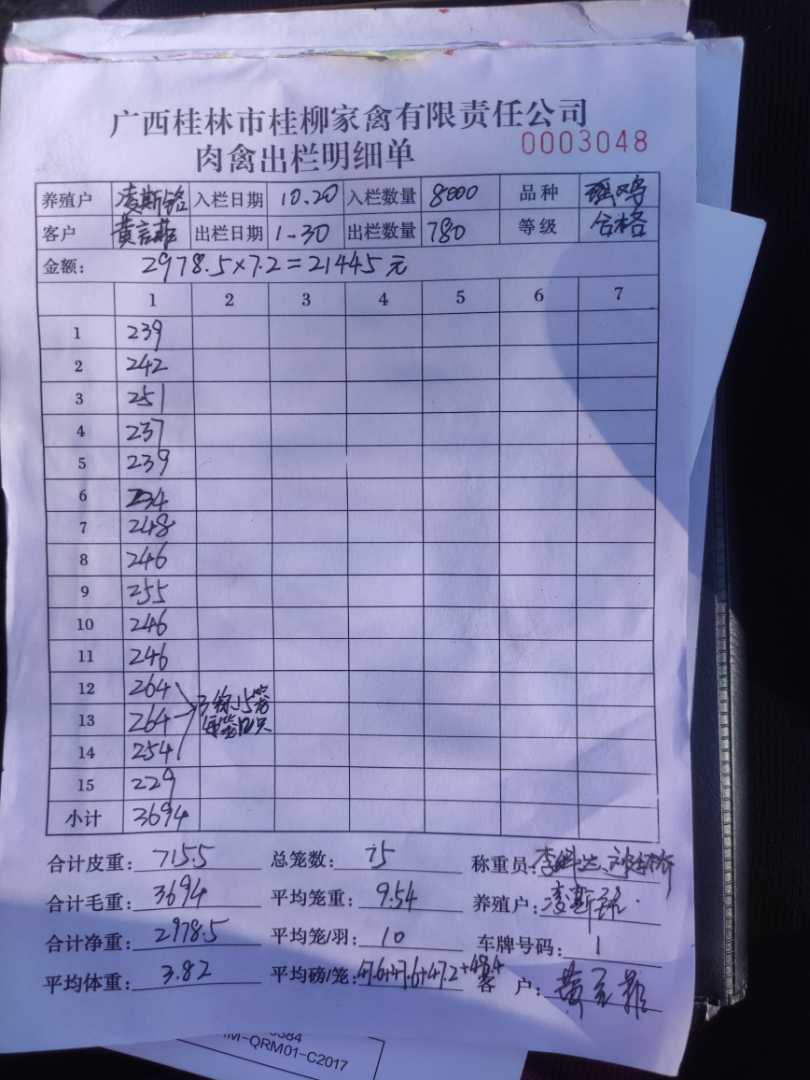 广西桂林市桂柳家禽有限责任公司
肉禽出栏明细单 0003048
养殖户 凌斯铭 入栏日期 10.20 入栏数量 8000 品种 瑶鸡
客户 黄言菲 出栏日期 1-30 出栏数量 780 等级 合格
金额: 2978.5×7.2=21445元
1 2 3 4 5 6 7
1 239
2 242
3 251
4 237
5 239
6 234
7 248
8 246
9 255
10 246
11 246
12 264
13 264 3称15笼
每笼12只
14 254
15 229
小计 3694
合计皮重: 715.5 总笼数: 75 称重员:
合计毛重: 3694 平均笼重: 9.54 养殖户: 凌斯铭
合计净重: 2978.5 平均笼/羽: 10 车牌号码: 1
平均体重: 3.82 平均磅/笼: 47.6+47.6+47.2+48.4 客户:
384
IM-QRM01-C2017